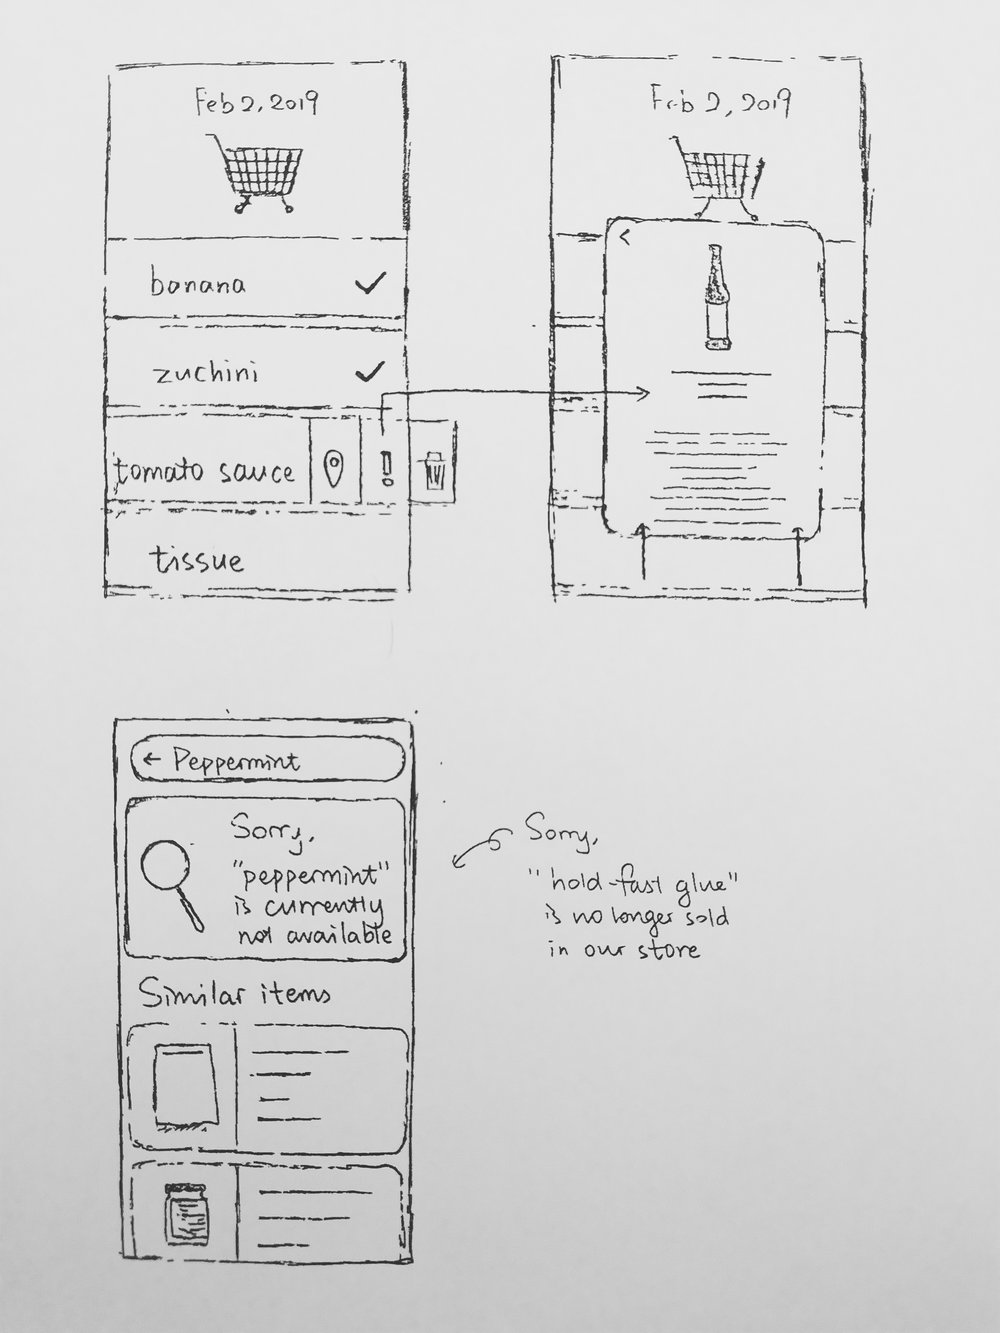 Feb 2, 2019
banana
zuchini
tomato sauce
tissue
Feb 2, 2019
<
← Peppermint
Sorry,
"peppermint"
is currently
not available
Similar items
Sorry,
"hold-fast glue"
is no longer sold
in our store